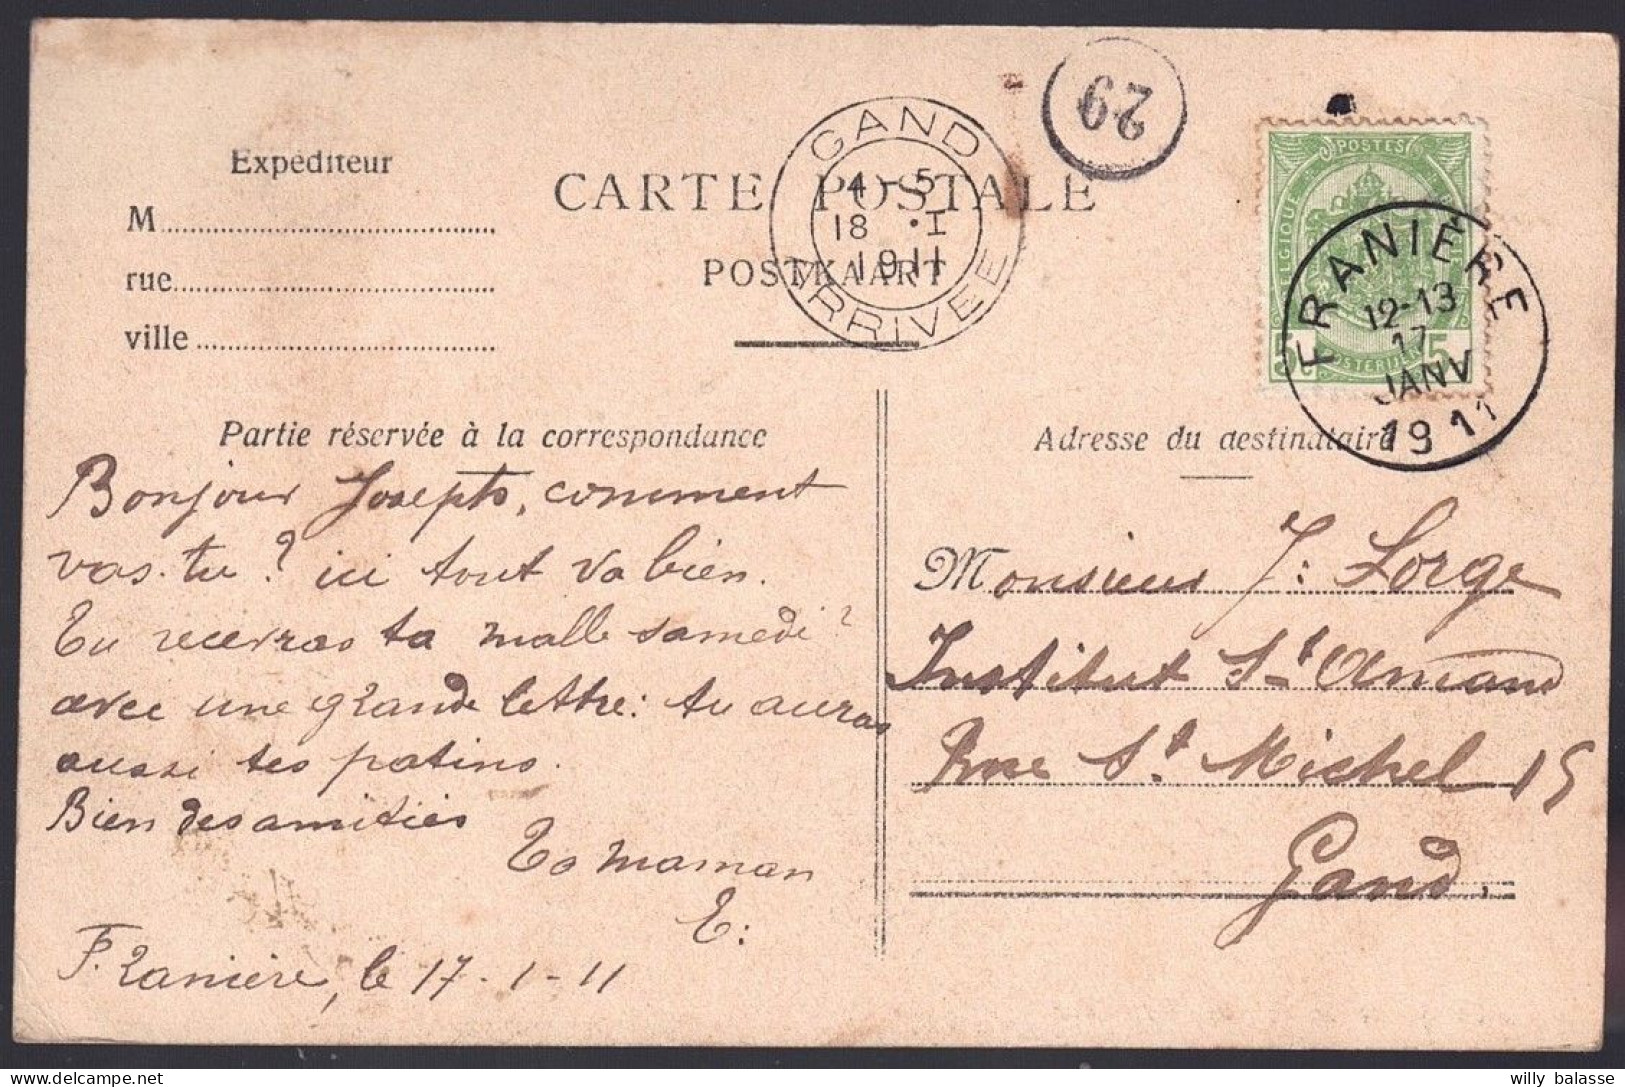 Expéditeur
M
rue
ville
CARTE POSTALE
POSTKAART
GAND
4-5
18 · I
1911
ARRIVEE
29
POSTES
BELGIQUE
5 5
FRANIÈRE
12-13
17
JANV
1911
Partie réservée à la correspondance
Bonjour Joseph, comment
vas-tu? ici tout va bien.
Tu recevras ta malle samedi?
avec une grande lettre: tu auras
aussi tes patins.
Bien des amitiés
Ta maman
E:
Franière, le 17-1-11
Adresse du destinataire
Monsieur J: Lorge
Institut St Amand
Rue St Michel 15
Gand.
willy balasse